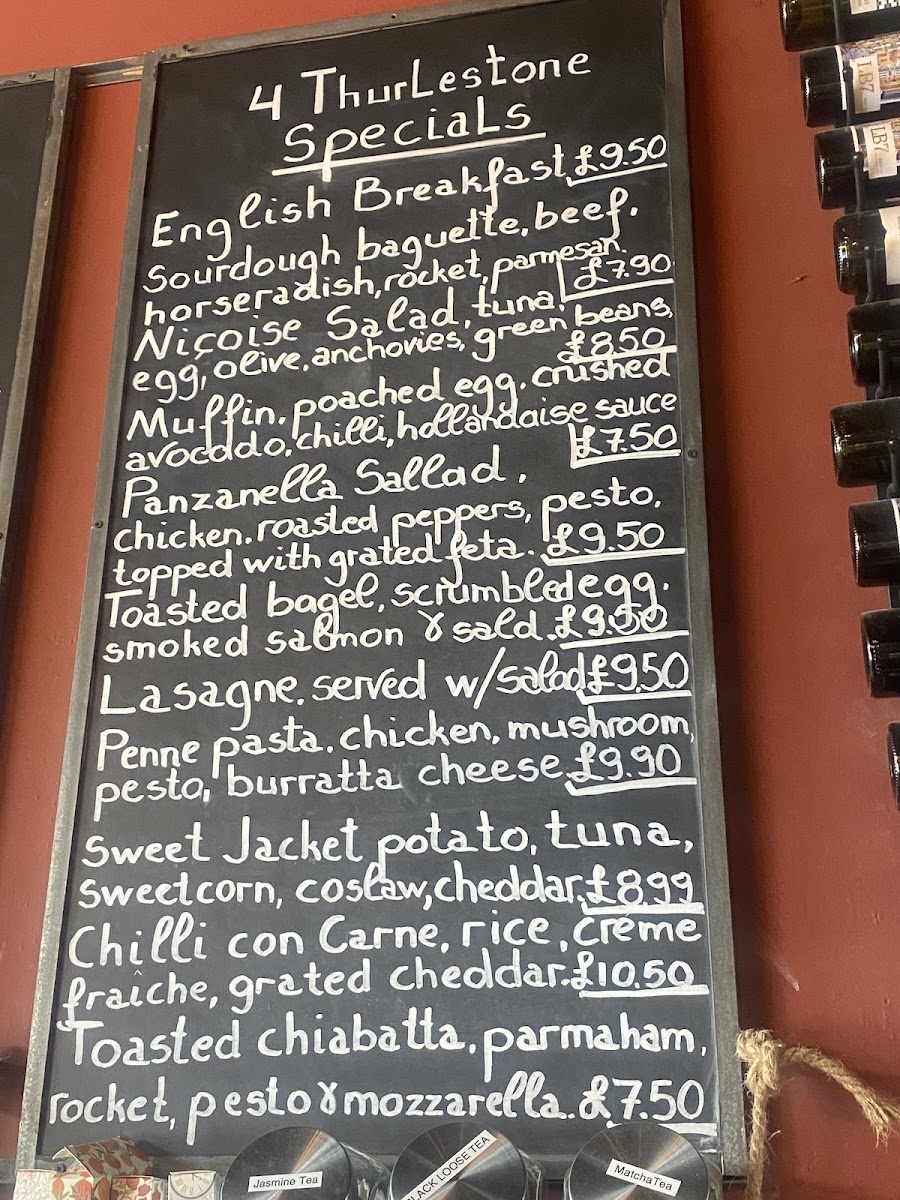 4 ThurLestone
Specials
English Breakfast £9.50
Sourdough baguette, beef,
horseradish, rocket, parmesan. £7.90
Niçoise Salad, tuna,
egg, olive, anchovies, green beans, £8.50
Muffin, poached egg, crushed
avocado, chilli, hollandaise sauce £7.50
Panzanella Sallad,
chicken, roasted peppers, pesto,
topped with grated feta. £9.50
Toasted bagel, scrumbled egg,
smoked salmon & sald. £9.50
Lasagne, served w/salad £9.50
Penne pasta, chicken, mushroom,
pesto, burratta cheese £9.90
Sweet Jacket potato, tuna,
sweetcorn, coslaw, cheddar. £8.99
Chilli con Carne, rice, créme
fraîche, grated cheddar. £10.50
Toasted chiabatta, parmaham,
rocket, pesto & mozzarella. £7.50
Jasmine Tea
BLACK LOOSE TEA
Matcha Tea
LB7
LB7